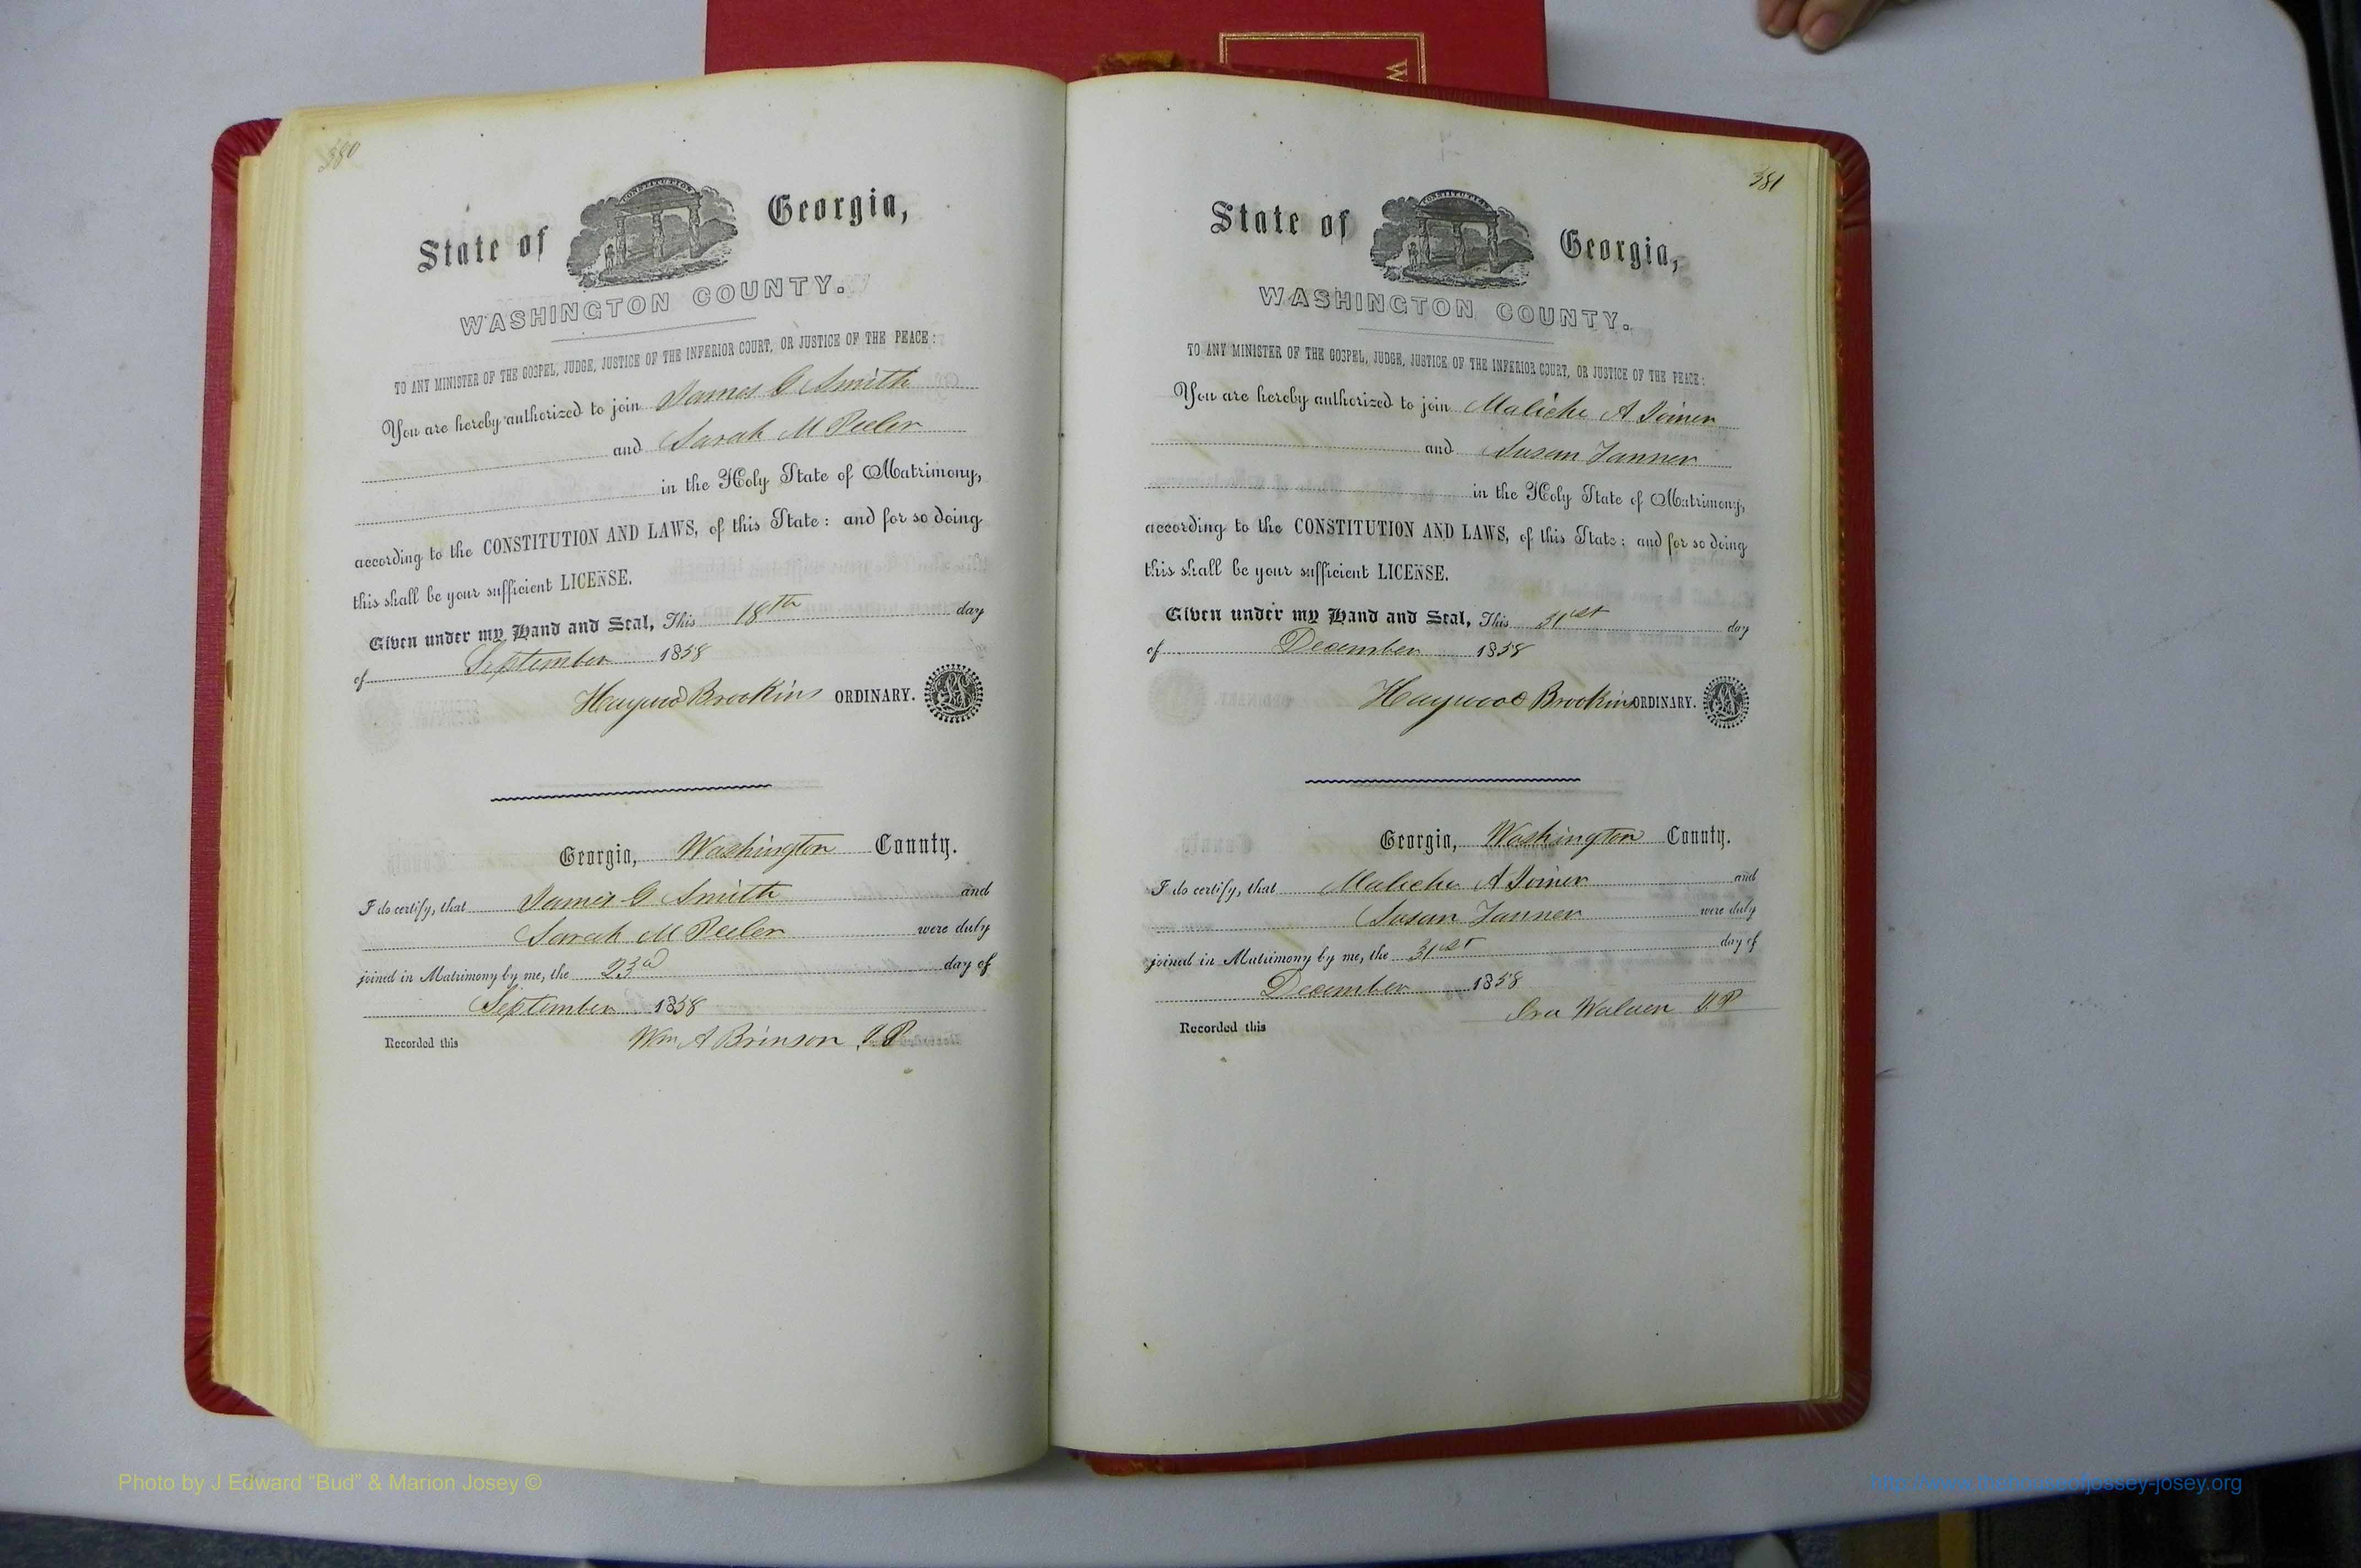 380
CONSTITUTION
State of Georgia,
WASHINGTON COUNTY.
TO ANY MINISTER OF THE GOSPEL, JUDGE, JUSTICE OF THE INFERIOR COURT, OR JUSTICE OF THE PEACE:
You are hereby authorized to join James G Smith
and Sarah M Peeler
in the Holy State of Matrimony,
according to the CONSTITUTION AND LAWS, of this State: and for so doing
this shall be your sufficient LICENSE.
Given under my Hand and Seal, This 18th day
of September 1858
Haywood Brookins ORDINARY.
Georgia, Washington County.
I do certify, that James G Smith and
Sarah M Peeler were duly
joined in Matrimony by me, the 23d day of
September 1858
Wm A Brinson J.P.
Recorded this
381
CONSTITUTION
State of Georgia,
WASHINGTON COUNTY.
TO ANY MINISTER OF THE GOSPEL, JUDGE, JUSTICE OF THE INFERIOR COURT, OR JUSTICE OF THE PEACE:
You are hereby authorized to join Maliche A Joiner
and Susan Tanner
in the Holy State of Matrimony,
according to the CONSTITUTION AND LAWS, of this State: and for so doing
this shall be your sufficient LICENSE.
Given under my Hand and Seal, This 31st day
of December 1858
Haywood Brookins ORDINARY.
Georgia, Washington County.
I do certify, that Maliche A Joiner and
Susan Tanner were duly
joined in Matrimony by me, the 31st day of
December 1858
Ira
Recorded this
W
Photo by J Edward “Bud” & Marion Josey ©
http://www.thehouseofjossey-josey.org